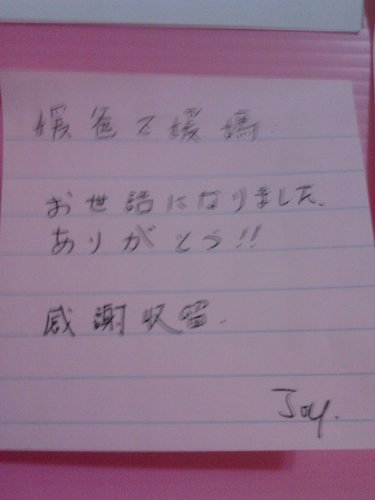 媛爸と媛媽:
お世話になりました、
ありがとう!!
感謝收留.
Joy.